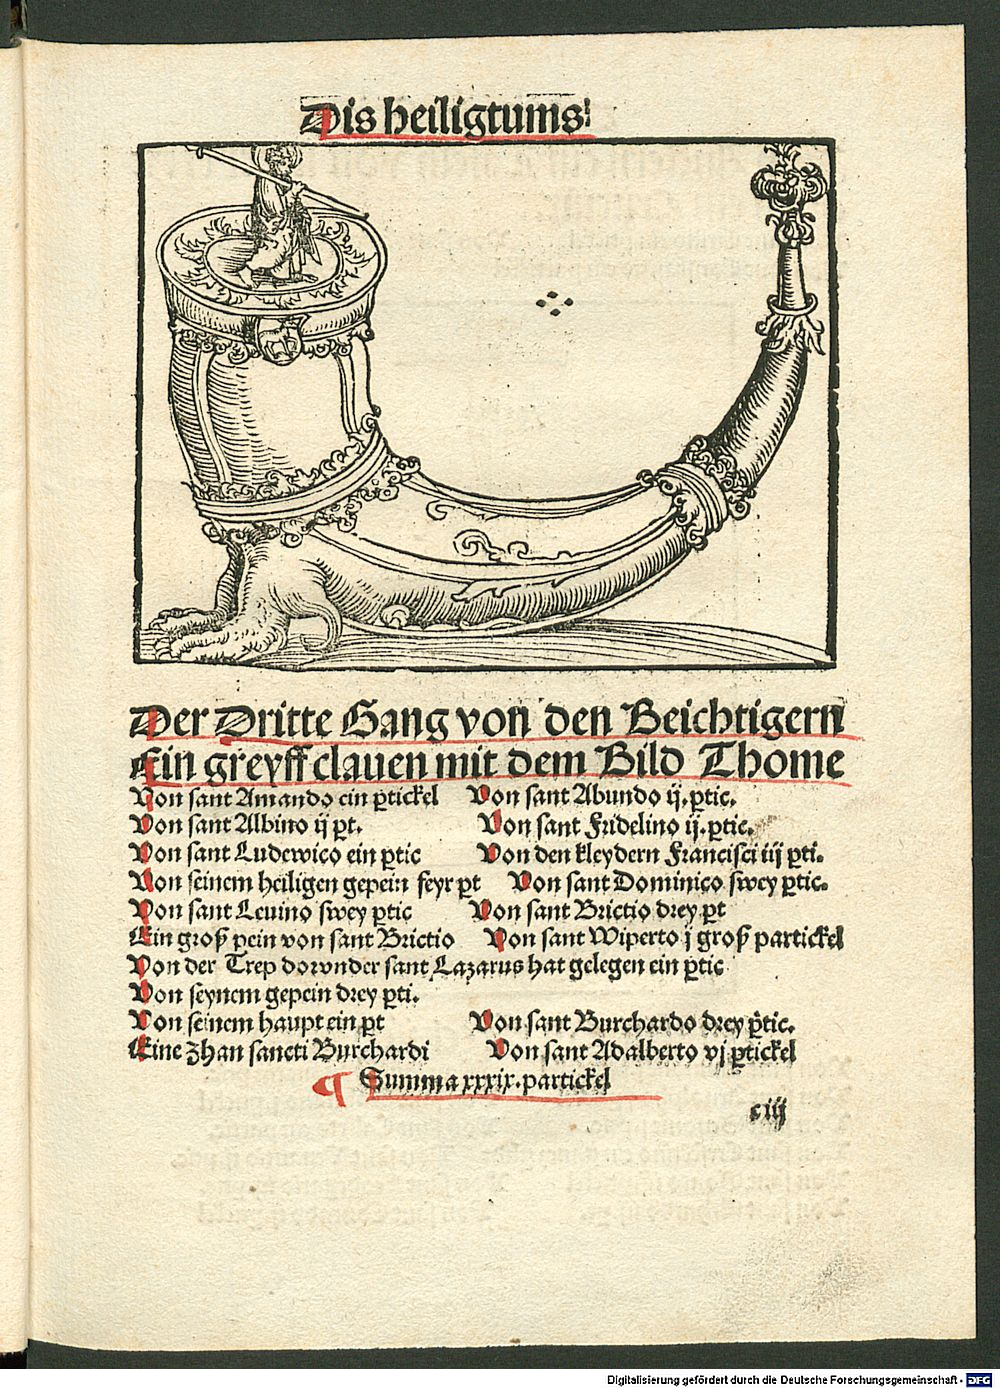 Dis heiligtums!
Der Dritte Gang von den Beichtigern
Ein greyff clauen mit dem Bild Thome
Von sant Amando ein ꝑtickel Von sant Abundo ij. ꝑtic.
Von sant Albino ij ꝑt. Von sant Fridelino ij. ꝑtic.
Von sant Ludewico ein ꝑtic Von den kleydern Francisci iij ꝑti.
Von seinem heiligen gepein feyr ꝑt Von sant Dominico swey ꝑtic.
Von sant Leuino swey ꝑtic Von sant Brictio drey ꝑt
Ein groß pein von sant Brictio Von sant Wiperto j groß partickel
Von der Trep dorvnder sant Lazarus hat gelegen ein ꝑtic
Von seynem gepein drey ꝑti.
Von seinem haupt ein ꝑt Von sant Burchardo drey ꝑtic.
Eine zhan sancti Burchardi Von sant Adalberto vj ꝑtickel
¶ Summa xxxix. partickel
ciij
Digitalisierung gefördert durch die Deutsche Forschungsgemeinschaft - DFG